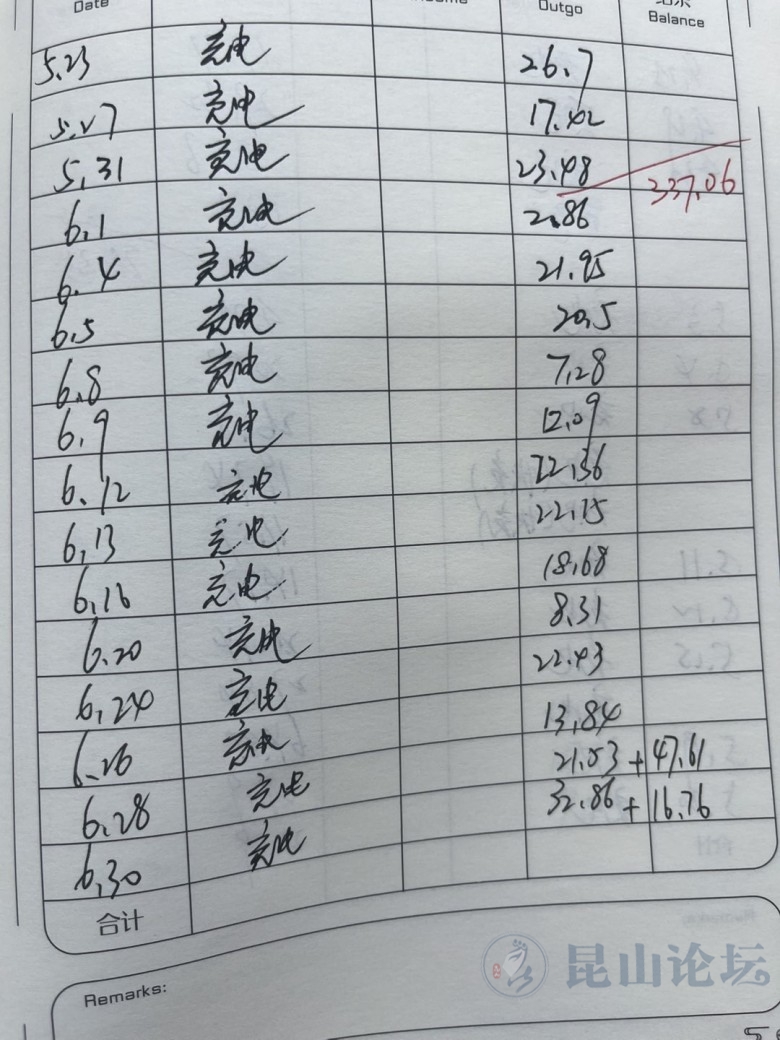 Date Outgo Balance
5.23 充电 26.7
5.27 充电 17.42
5.31 充电 23.48 337.06
6.1 充电 2.86
6.4 充电 21.95
6.5 充电 20.5
6.8 充电 7.28
6.9 充电 12.09
6.12 充电 22.36
6.13 充电 22.15
6.16 充电 18.68
6.20 充电 8.31
6.24 充电 22.43
6.26 充电 13.84
6.28 充电 21.53 + 47.61
6.30 充电 32.86 + 16.76
合计
Remarks:
昆山论坛